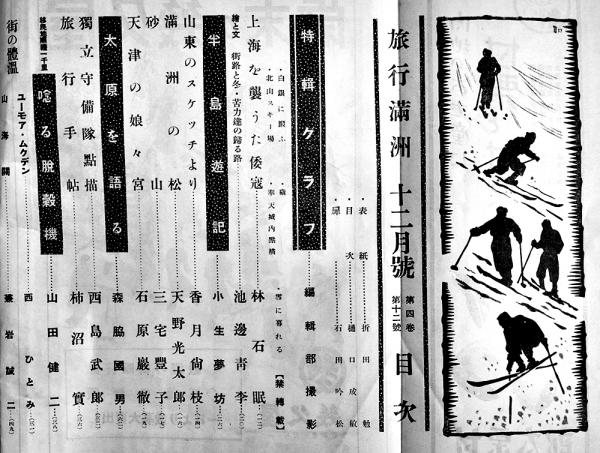 旅行滿洲 十二月號 第四卷 第十二號 目次
・表紙 折田勉
・目次 樋口成敏
・扉 石田吟松
特輯グラフ 編輯部撮影
・白銀に躍ふ ・礒 ・雪に暮れる
・北山スキー場 ・奉天城內點描 【禁轉載】
上海を襲うた倭寇 林石眠
繪と文 街路と冬・苦力達の歸る路 池邊靑李
半島遊記 小生夢坊
山東のスケッチより 香月尙枝
滿洲の松 天野光太郞
砂山 三宅豐子
天津の娘々宮 石原巖徹
太原を語る 森脇國男
獨立守備隊點描 西島武郞
旅行手帖 柿沼實
唸る脫穀機 山田健二
ユーモア・ムクデン 西ひとみ
街の體溫 山海關 岩誠二